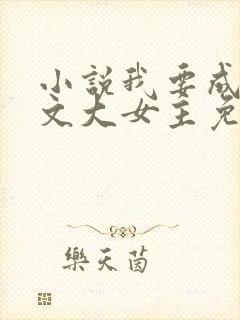 小說我要成
文大女主免
樂天茵